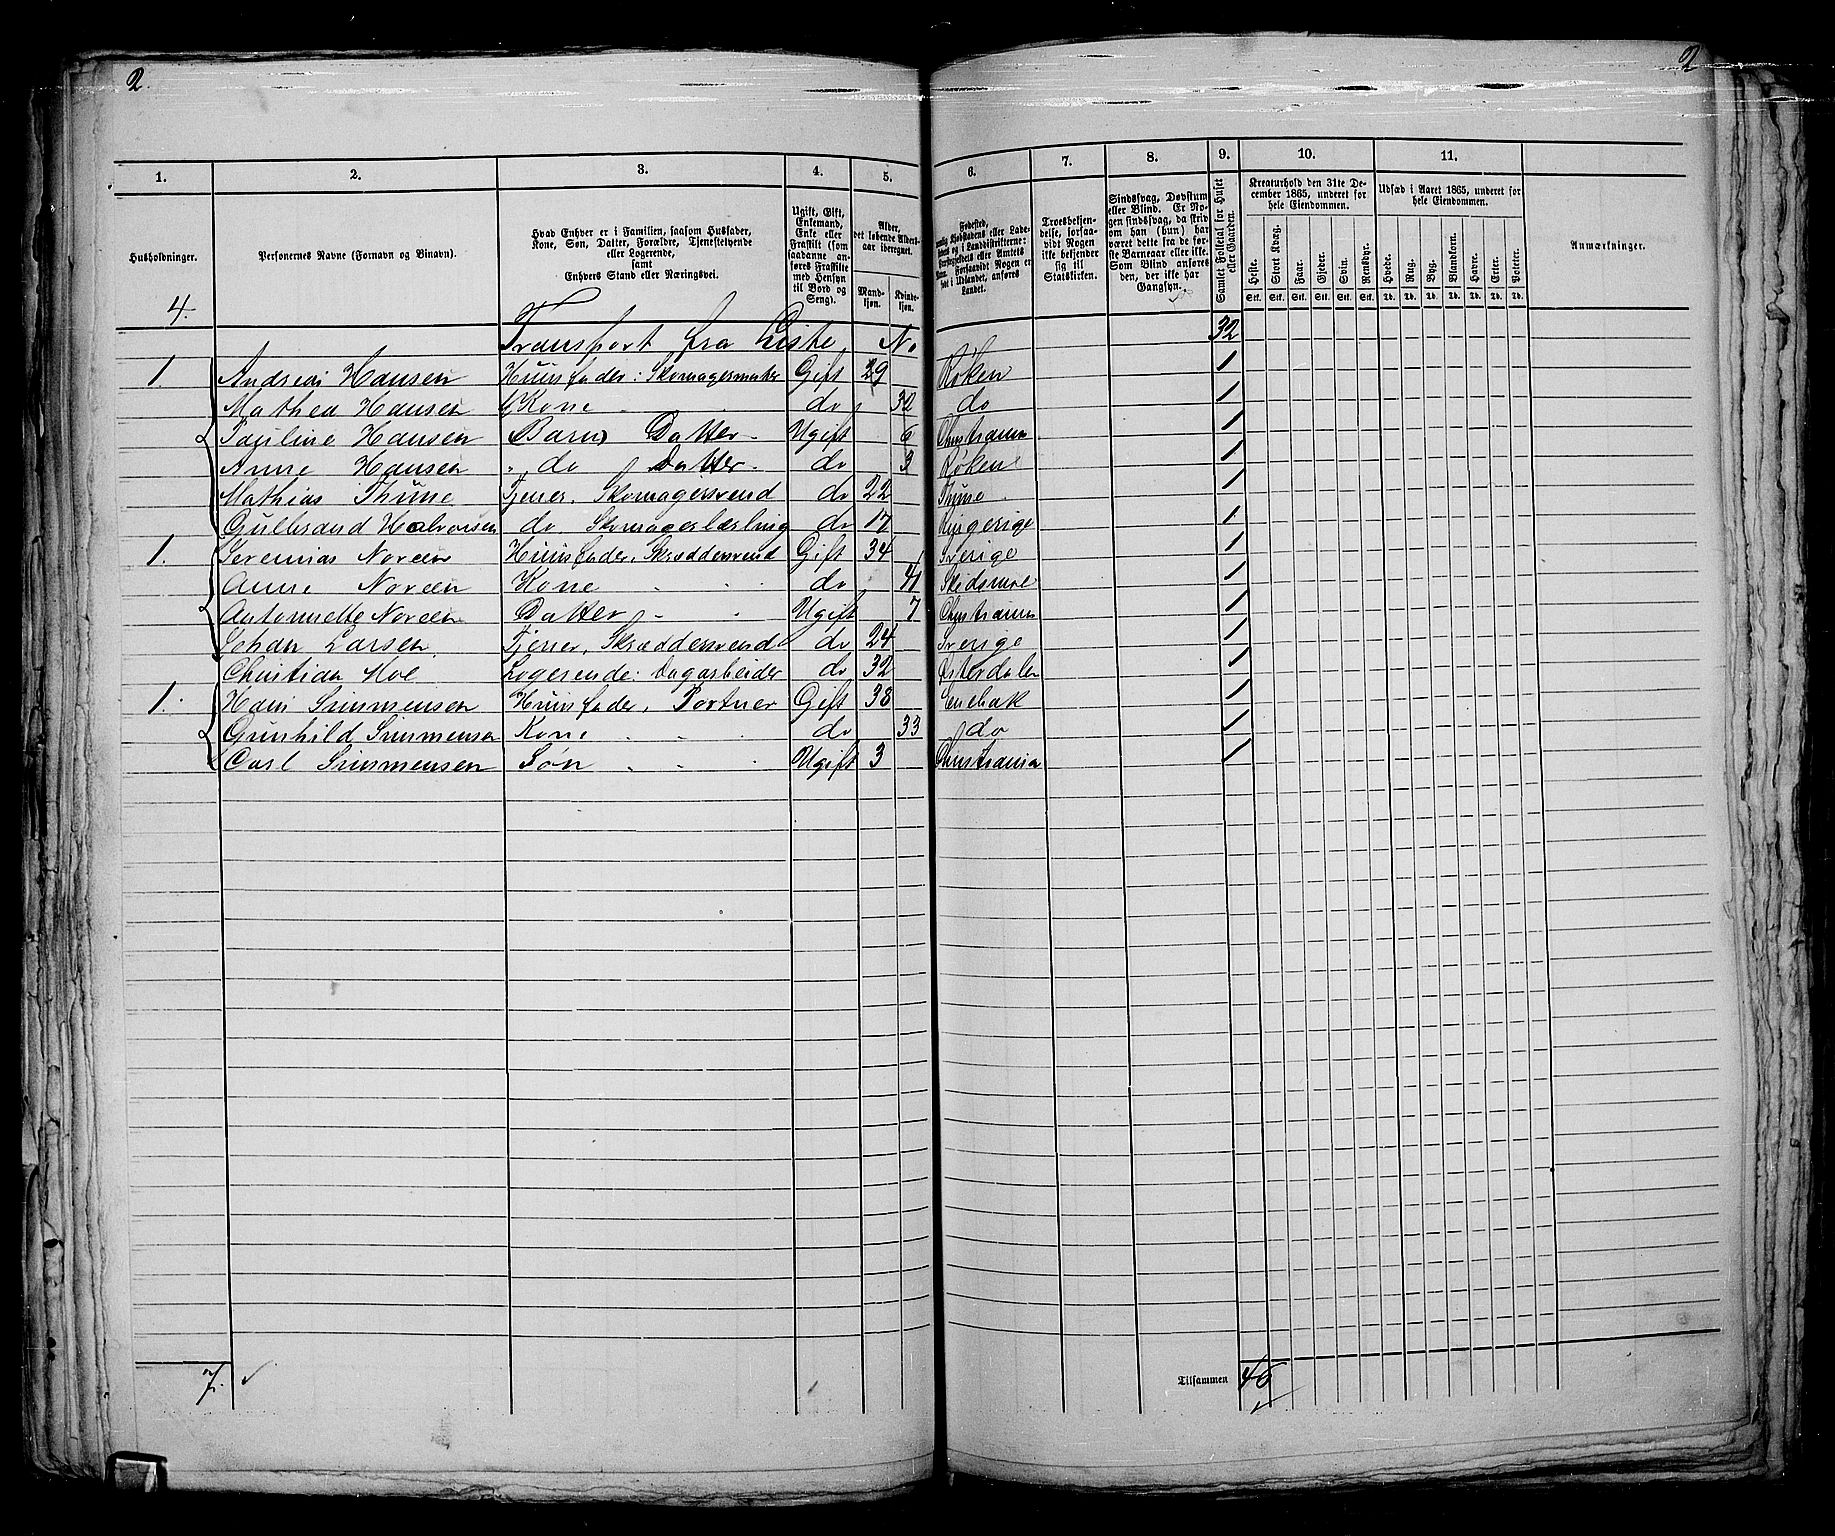 2. 2
1. 2. 3. 4. 5. 6. 7. 8. 9. 10. 11.
Husholdninger. Personernes Navne (Fornavn og Binavn). Hvad Enhver er i Familien, saasom Husfader, Kone, Søn, Datter, Forældre, Tjenestetyende eller Logerende, samt Enhvers Stand eller Næringsvei. Ugift, Gift, Enkemand, Enke eller Fraskilt (som saadanne anføres Fraskilte med Hensyn til Bord og Seng). Alder, det løbende Alders-aar iberegnet. Mand-kjøn. Kvinde-kjøn. Fødested, Landet. Troesbekjendelse, forsaavidt Nogen ikke bekjender sig til Statskirken. Sindssvag, Døvstum eller Blind. Er Nogen sindssvag, da skrives om han (hun) har været dette fra de første Barneaar eller ikke. Som Blind anføres den, der ikke har Gangsyn. Samlet Folketal for Huset eller Gaarden. Kreaturhold den 31te December 1865, underet for hele Eiendommen. Udsæd i Aaret 1865, underet for hele Eiendommen. Anmærkninger.
Heste. Stort Kvæg. Faar. Gjeder. Svin. Rensdyr. Hvede. Rug. Byg. Blandkorn. Havre. Erter. Poteter.
Stk. Stk. Stk. Stk. Stk. Stk. Td. Td. Td. Td. Td. Td. Td.
4. Transport fra Liste No. 32
1 Andreas Hansen Huusfader: Skomagermester Gift 29 Røken 1
Mathea Hansen Kone do 32 do 1
Pauline Hansen Barn Datter Ugift 6 Christiania 1
Anne Hansen do Datter do 3 Røken 1
Mathias Thune Tjener, Skomagersvend do 22 Thune 1
Gulbrand Halvorsen do Skomagerlærling do 17 Ringerige 1
1. Jeremias Noréen Huusfader, Skræddersvend Gift 34 Sverige 1
Anne Noréen Kone do 41 Skidsmoe 1
Antonnette Noréen Datter Ugift 7 Christiania 1
Johan Larsen Tjener, Skræddersvend do 24 Sverige 1
Christian Moe Logerende: Dagarbeider do 32 Østerdalen 1
1. Hans Simmensen Huusfader, Portner Gift 38 Enebak 1
Gunhild Simmensen Kone do 33 do 1
Carl Simmensen Søn Ugift 3 Christiania 1
7. Tilsammen 46